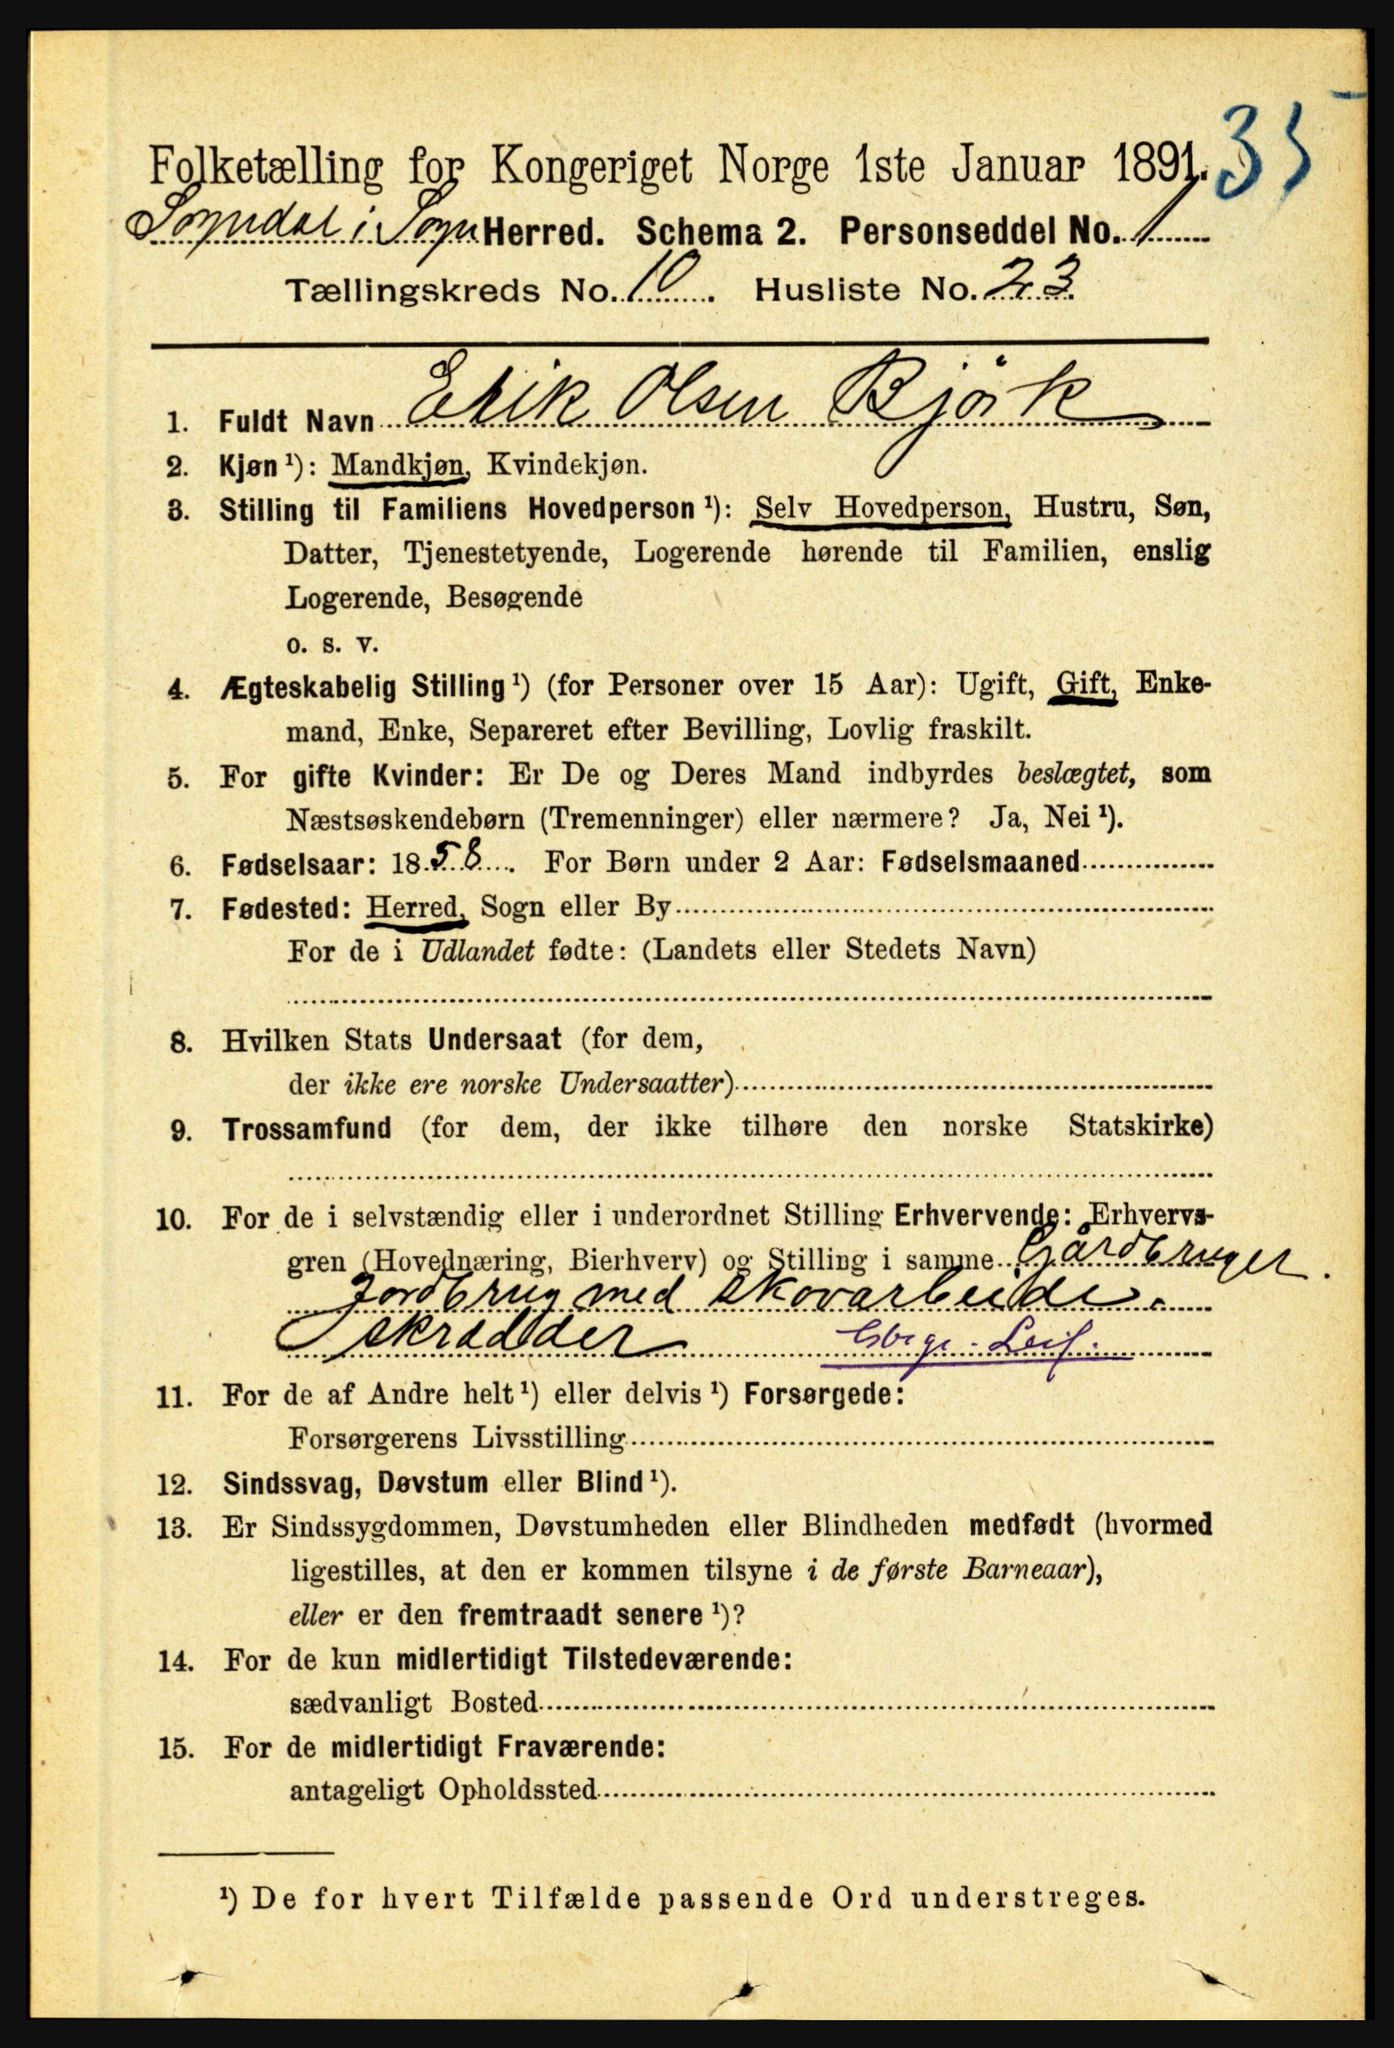 35
Folketælling for Kongeriget Norge 1ste Januar 1891.
Sogndal i Sogn Herred. Schema 2. Personseddel No. 1
Tællingskreds No. 10. Husliste No. 23
1. Fuldt Navn Erik Olsen Bjørk
2. Kjøn ¹): Mandkjøn, Kvindekjøn.
3. Stilling til Familiens Hovedperson ¹): Selv Hovedperson, Hustru, Søn,
Datter, Tjenestetyende, Logerende hørende til Familien, enslig
Logerende, Besøgende
o. s. v.
4. Ægteskabelig Stilling ¹) (for Personer over 15 Aar): Ugift, Gift, Enke-
mand, Enke, Separeret efter Bevilling, Lovlig fraskilt.
5. For gifte Kvinder: Er De og Deres Mand indbyrdes beslægtet, som
Næstsøskendebørn (Tremenninger) eller nærmere? Ja, Nei ¹).
6. Fødselsaar: 1858. For Børn under 2 Aar: Fødselsmaaned
7. Fødested: Herred, Sogn eller By
For de i Udlandet fødte: (Landets eller Stedets Navn)
8. Hvilken Stats Undersaat (for dem,
der ikke ere norske Undersaatter)
9. Trossamfund (for dem, der ikke tilhøre den norske Statskirke)
10. For de i selvstændig eller i underordnet Stilling Erhvervende: Erhvervs-
gren (Hovednæring, Bierhverv) og Stilling i samme Gårdbruger.
Jordbrug med skovarbeide.
skrædder
11. For de af Andre helt ¹) eller delvis ¹) Forsørgede:
Forsørgerens Livsstilling
12. Sindssvag, Døvstum eller Blind ¹).
13. Er Sindssygdommen, Døvstumheden eller Blindheden medfødt (hvormed
ligestilles, at den er kommen tilsyne i de første Barneaar),
eller er den fremtraadt senere ¹)?
14. For de kun midlertidigt Tilstedeværende:
sædvanligt Bosted
15. For de midlertidigt Fraværende:
antageligt Opholdssted
¹) De for hvert Tilfælde passende Ord understreges.